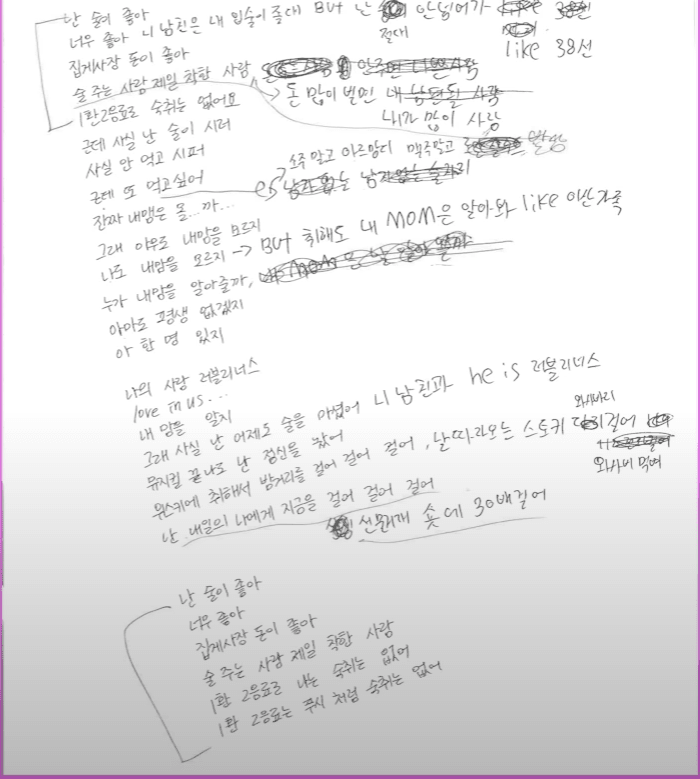 난 술이 좋아
너무 좋아 니 남친은 내 입술이 좋대 But 난 절대 안넘어가 like 38선
집게사장 돈이 좋아
술 주는 사람 제일 착한 사람
돈 많이 벌면 내 남편될 사람
내가 많이 사랑
1환2음료로 숙취는 없어요
근데 사실 난 술이 시러
사실 안 먹고 시퍼
소주 말고 아르망디 맥주말고 발망
근데 또 먹고싶어
진짜 내맴은 몰...까...
그래 아무도 내맘을 모르지
나도 내맘을 모르지 → But 취해도 내 MOM은 알아와 like 이산가족
누가 내맘을 알아줄까,
아마도 평생 없겠지
아 한 명 있지
나의 사랑 러블리너스
love in us...
내 맘을 알지
그래 사실 난 어제도 술을 마셨어 니 남친과 he is 러블리너스
뮤지컬 끝나도 난 정신을 놨어
위스키에 취해서 밤거리를 걸어 걸어 걸어, 날따라오는 스토커 와사바리 걸어
와사비 먹여
난 내일의 나에게 지금을 걸어 걸어 걸어
선물개 숏에 30배걸어
난 술이 좋아
너무 좋아
집게사장 돈이 좋아
술 주는 사람 제일 착한 사람
1환 2음료로 나는 숙취는 없어
1환 2음료는 주시 처럼 숙취는 없어